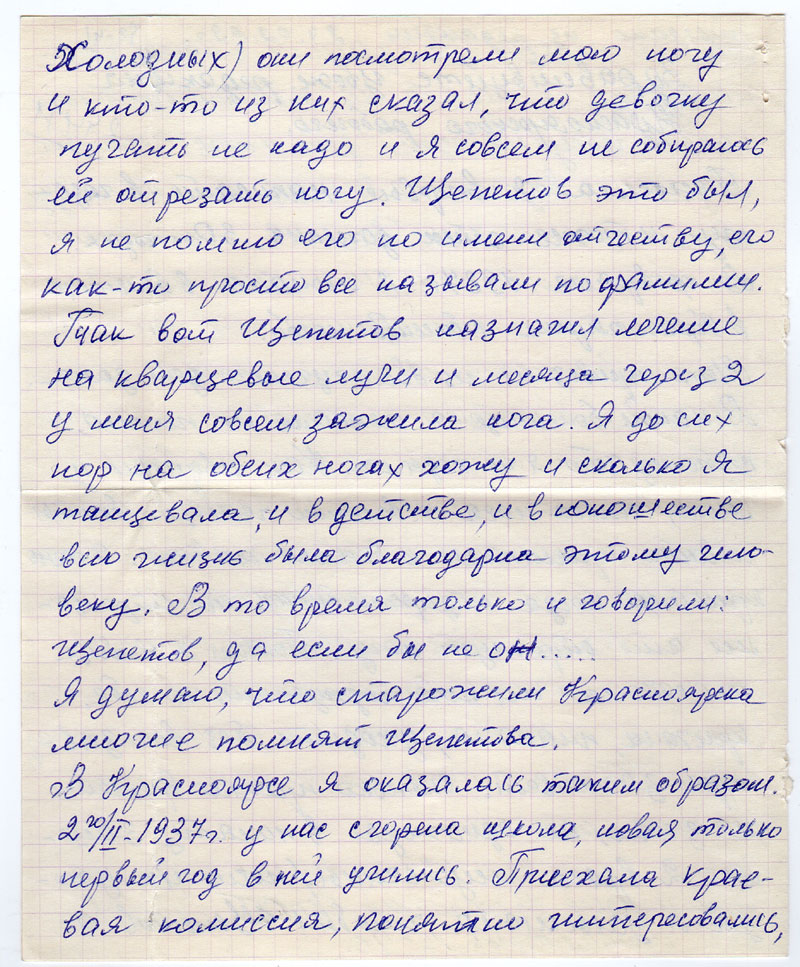 Холодных) они посмотрели мою ногу
и кто-то из них сказал, что девочку
пугать не надо и я совсем не собираюсь
ей отрезать ногу. Щепетов это был,
я не помню его по имени отчеству, его
как-то просто все называли по фамилии.
Так вот Щепетов назначил лечение
на кварцевые лучи и месяца через 2
у меня совсем зажила нога. Я до сих
пор на обеих ногах хожу и сколько я
танцевала, и в детстве, и в юношестве
всю жизнь была благодарна этому чело-
веку. В то время только и говорили:
Щепетов, да если бы не он.....
Я думаю, что старожили Красноярска
многие помнят Щепетова.
В Красноярске я оказалась таким образом.
2го/II-1937г. у нас сгорела школа, новая только
первый год в ней учились. Приехала крае-
вая комиссия, понятно интересовались,